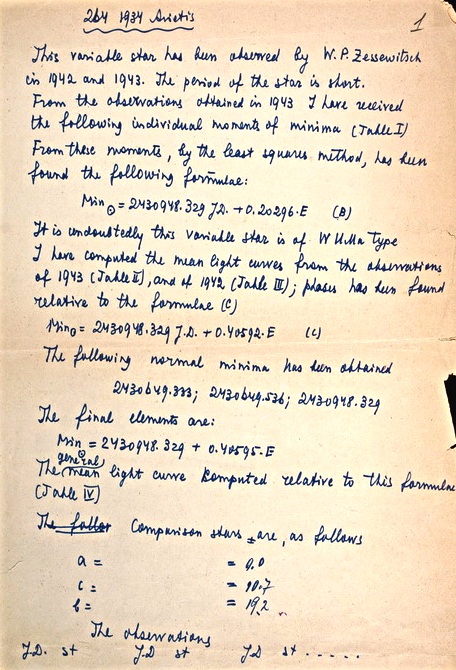 264 1934 Arietis
1
This variable star has been observed by W.P. Zessewitsch
in 1942 and 1943. The period of the star is short.
From the observations obtained in 1943 I have received
the following individual moments of minima (Table I)
From these moments, by the least squares method, has been
found the following formulae:
Min⊙ = 2430948.329 J.D. + 0.20296.E (B)
It is undoubtedly this variable star is of W UMa type
I have computed the mean light curves from the observations
of 1943 (Table II), and of 1942 (Table III); phases has been found
relative to the formulae (C)
Min⊙ = 2430948.329 J.D. + 0.40592.E (C)
The following normal minima has been obtained
2430649.333; 2430649.536; 2430948.329
The final elements are:
Min⊙ = 2430948.329 + 0.40595.E
general
The mean light curve computed relative to this formulae
(Table IV)
The follow Comparison stars are, as follows
a = = 9.0
c = = 10.7
b = = 19.2
The observations
J.D. st J.D st J.D st .....